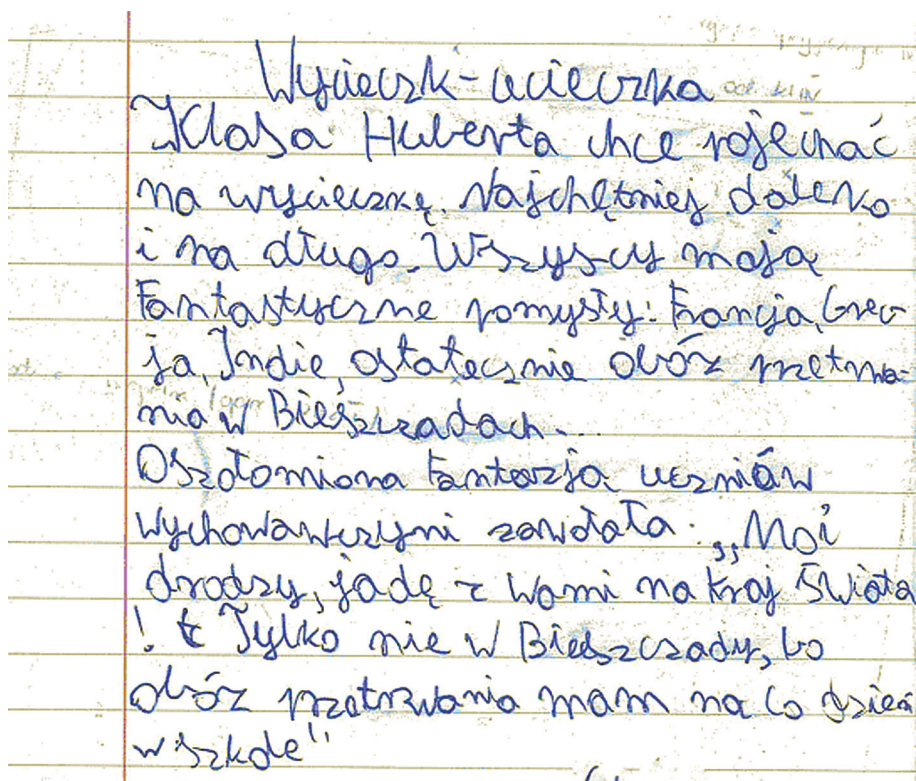 Wycieczk-ucieczka
Klasa Huberta chce pojechać
na wycieczkę. Najchętniej daleko
i na długo. Wszyscy mają
Fantastyczne pomysły: Francja, Grec
ja, Indie, ostatecznie obóz przetrwa-
nia w Bieszczadach...
Oszołomiona fantazją uczniów
wychowawczyni zawołała: „Moi
drodzy, jadę z Wami na kraj Świata
! Tylko nie w Bieszczady, bo
obóz przetrwania mam na co dzień
w szkole"